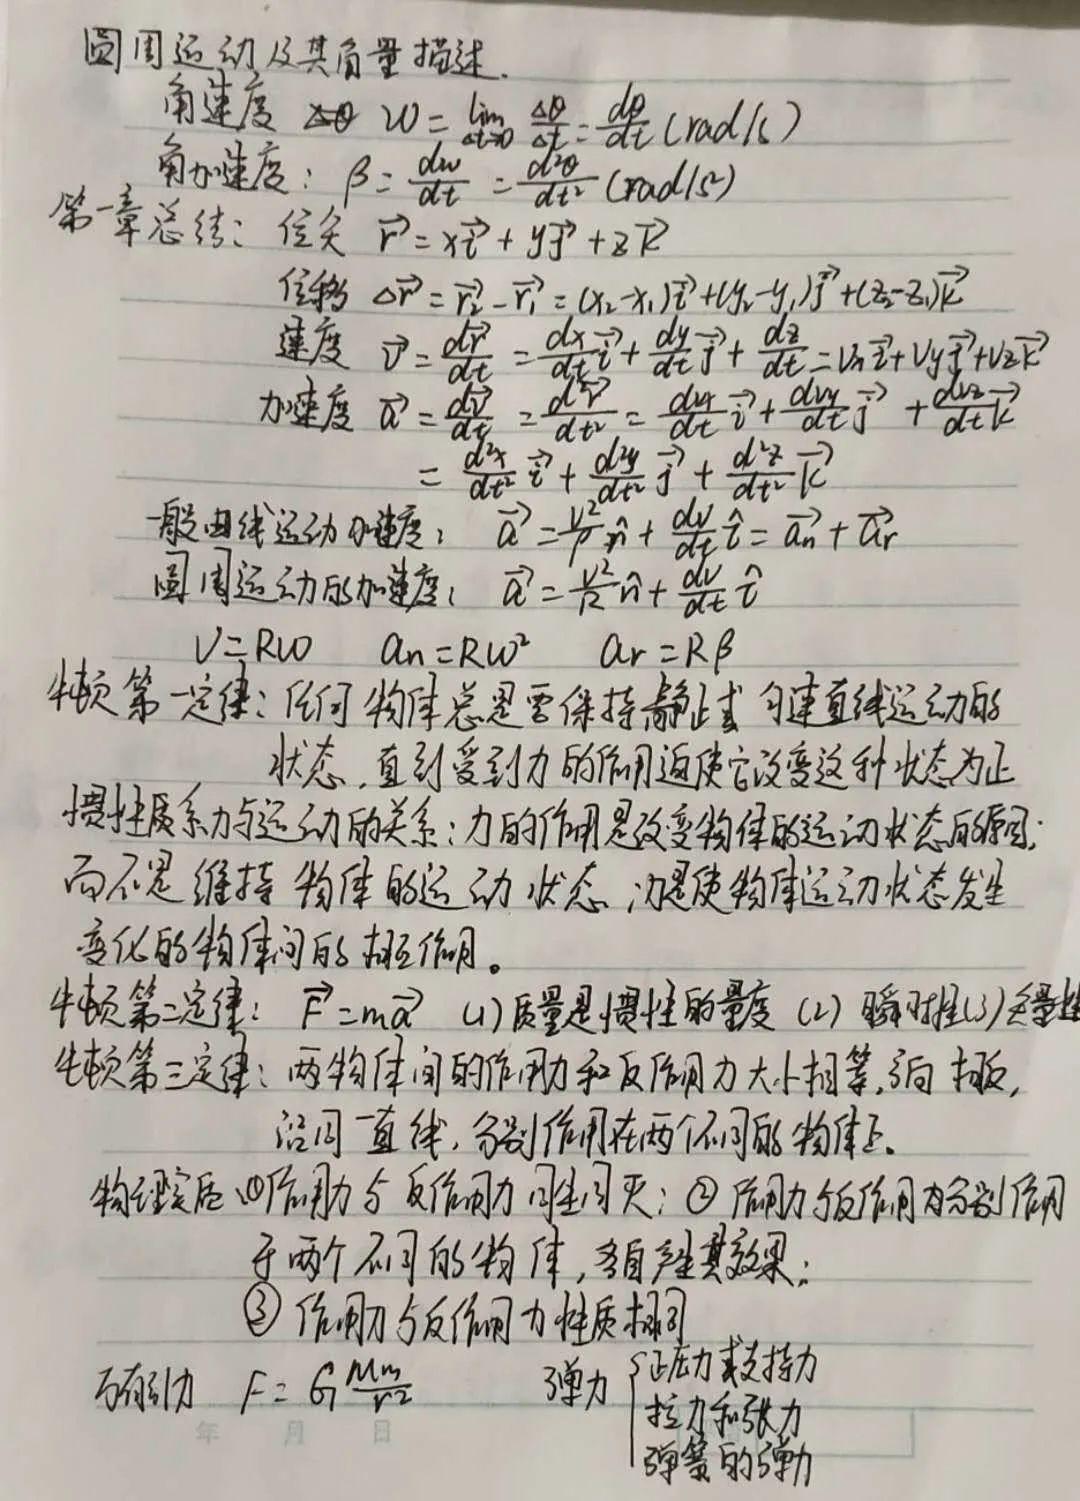 圆周运动及其角量描述.
角速度 Δθ ω = lim Δt→0 Δθ/Δt = dθ/dt (rad/s)
角加速度: β = dω/dt = d²θ/dt² (rad/s²)
第一章总结: 位矢 r⃗ = xi⃗ + yj⃗ + zk⃗
位移 Δr⃗ = r⃗₂ - r⃗₁ = (x₂-x₁)i⃗ + (y₂-y₁)j⃗ + (z₂-z₁)k⃗
速度 v⃗ = dr⃗/dt = dx/dt i⃗ + dy/dt j⃗ + dz/dt = Vxi⃗ + Vyj⃗ + Vzk⃗
加速度 a⃗ = dv⃗/dt = d²r⃗/dt² = dvx/dt i⃗ + dvy/dt j⃗ + dvz/dt k⃗
= d²x/dt² i⃗ + d²y/dt² j⃗ + d²z/dt² k⃗
一般曲线运动加速度: a⃗ = v²/ρ n̂ + dv/dt τ̂ = a⃗n + a⃗τ
圆周运动的加速度: a⃗ = v²/R n̂ + dv/dt τ̂
V = Rω an = Rω² aτ = Rβ
牛顿第一定律: 任何物体总是要保持静止或匀速直线运动的
状态,直到受到力的作用迫使它改变这种状态为止
惯性质系力与运动的关系:力的作用是改变物体的运动状态的原因;
而不是维持物体的运动状态,力是使物体运动状态发生
变化的物体间的相互作用。
牛顿第二定律: F⃗ = ma⃗ (1)质量是惯性的量度 (2)瞬时性(3)矢量性
牛顿第三定律:两物体间的作用力和反作用力大小相等,方向相反,
沿同一直线,分别作用在两个不同的物体上。
物理实质:①作用力与反作用力同生同灭;②作用力与反作用力分别作用
于两个不同的物体,各自产生其效果;
③作用力与反作用力性质相同
万有引力 F = G Mm/r² 弹力 { 正压力或支持力
拉力和张力
弹簧的弹力
年 月 日